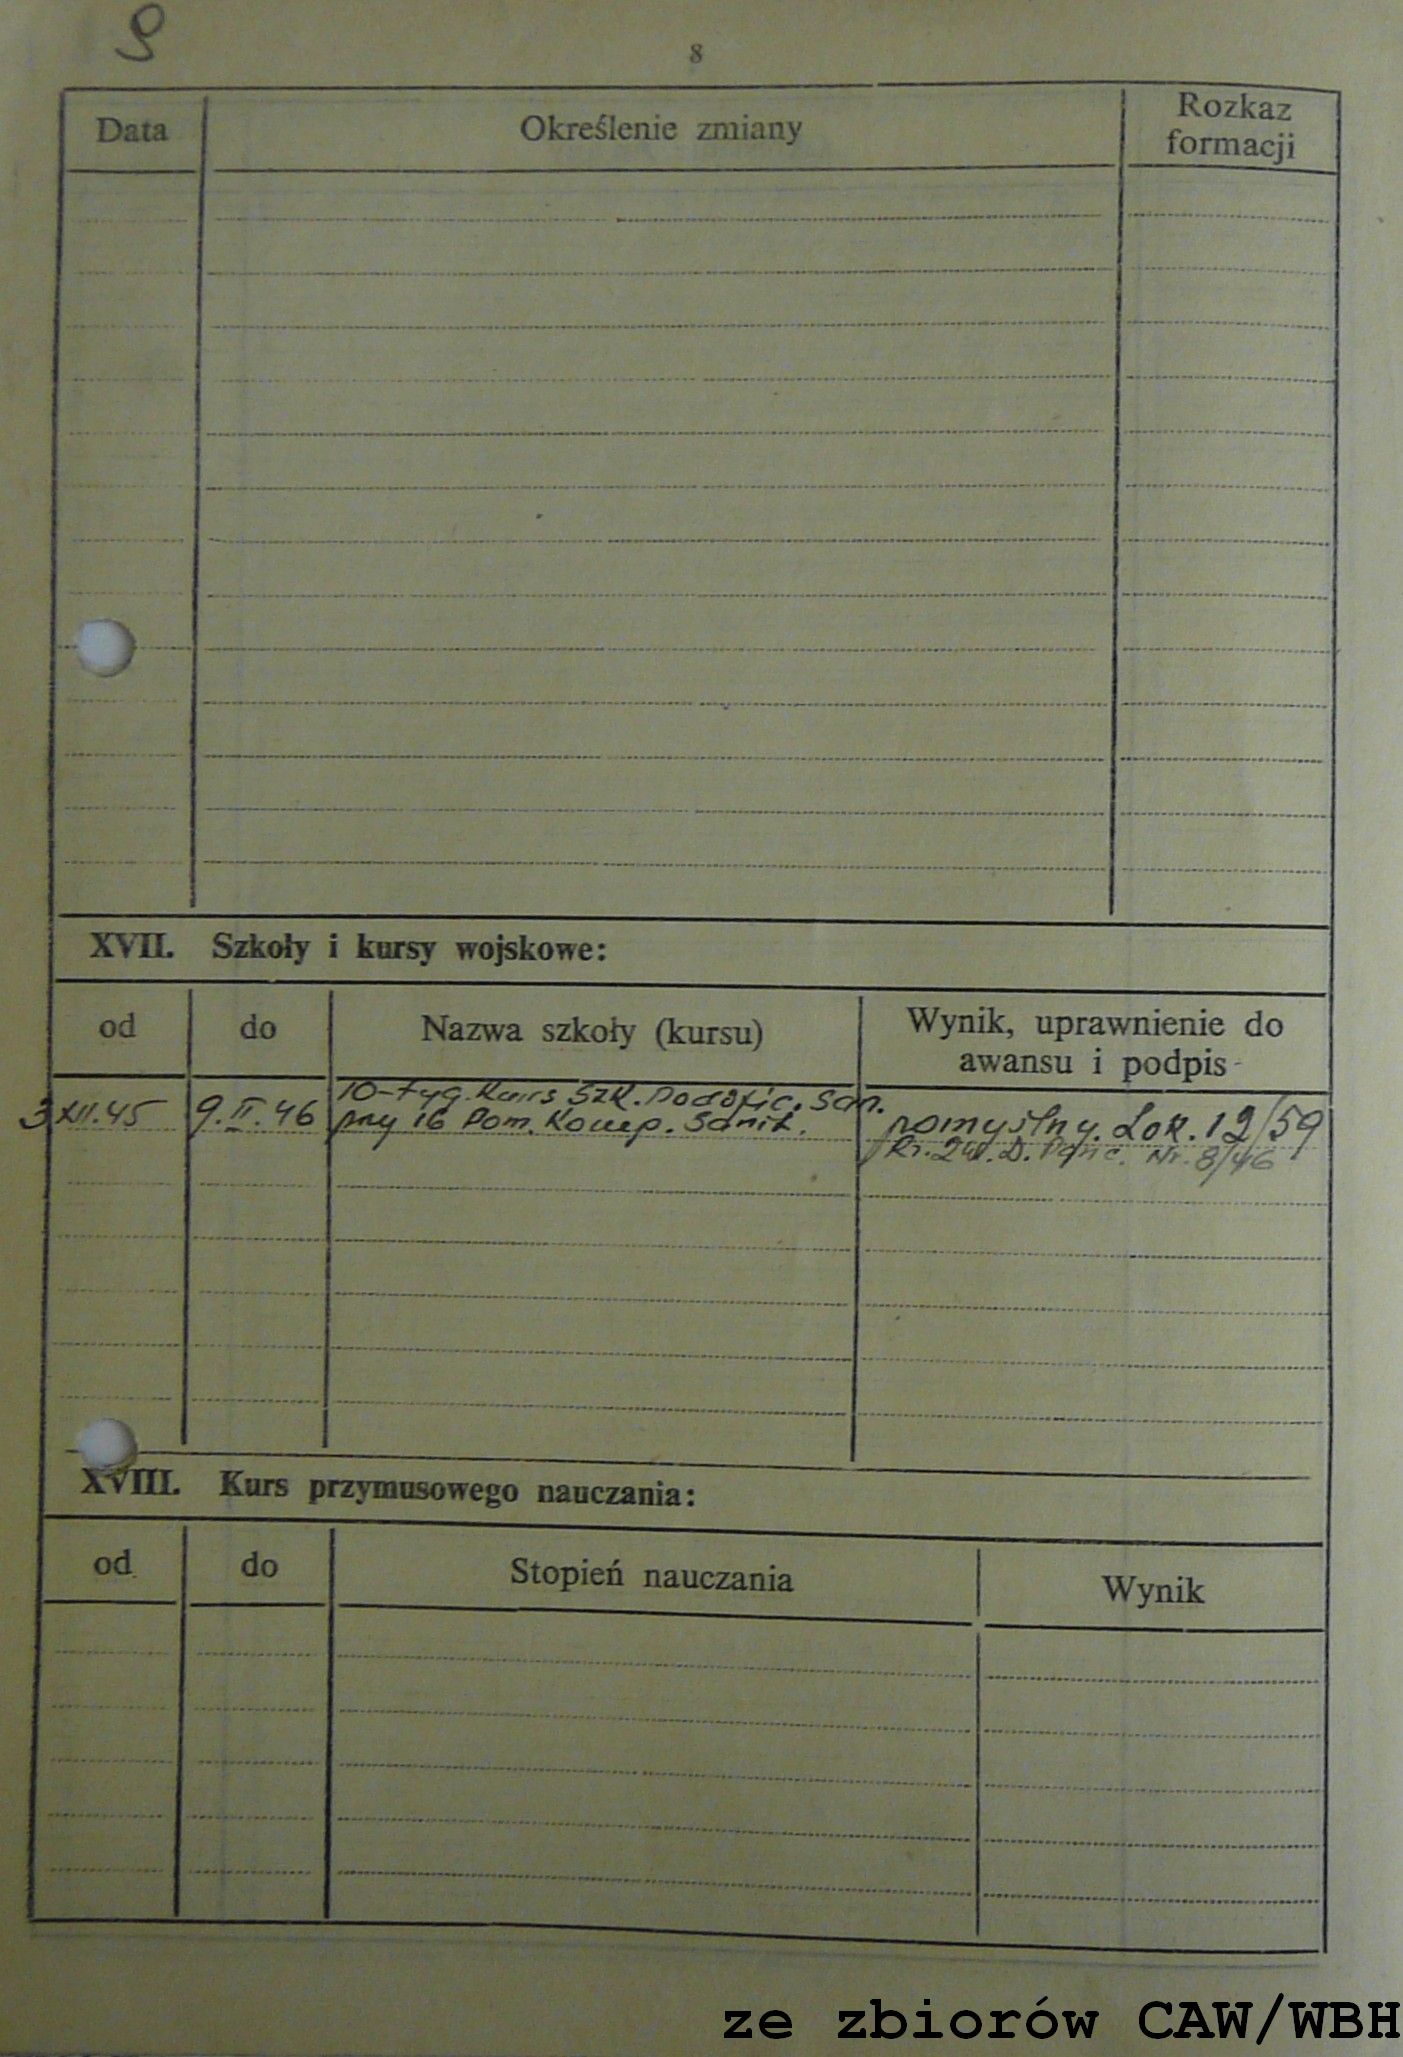 9
8
Data Określenie zmiany Rozkaz formacji
XVII. Szkoły i kursy wojskowe:
od do Nazwa szkoły (kursu) Wynik, uprawnienie do awansu i podpis
3 XII.45 9.II.46 10-tyg. Kurs Szk. Podofic. San.
przy 16 Pom. Komp. Sanit. pomyślny. Lok. 12/59
Rr. 2 W. D. Panc. Nr. 8/46
XVIII. Kurs przymusowego nauczania:
od do Stopień nauczania Wynik
ze zbiorów CAW/WBH